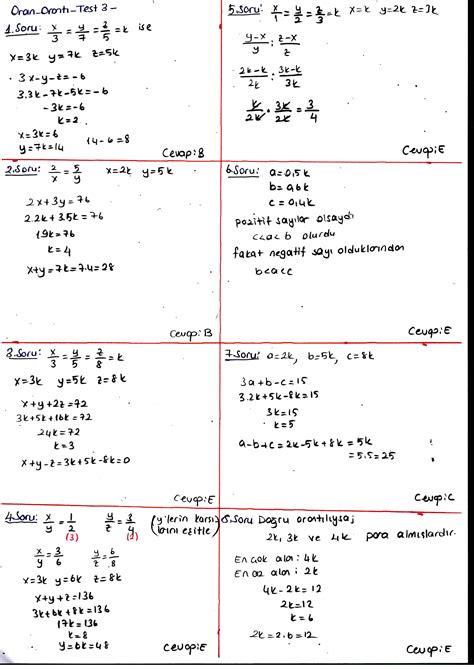 Oran-Orantı-Test 3-
1.Soru: x/3 = y/7 = z/5 = k ise
x=3k y=7k z=5k
3x-y-z=-6
3.3k-7k-5k=-6
-3k=-6
k=2
x=3k=6
y=7k=14 14-6=8
Cevap:B
2.Soru: 2/x = 5/y x=2k y=5k
2x+3y=76
2.2k+3.5k=76
19k=76
k=4
x+y=7k=7.4=28
Cevap:B
3.Soru: x/3 = y/5 = z/8 = k
x=3k y=5k z=8k
x+y+2z=72
3k+5k+16k=72
24k=72
k=3
x+y-z=3k+5k-8k=0
Cevap:E
4.Soru: x/y = 1/2 y/z = 3/4 (y'lerin karşı
(3) (2)
x/y = 3/6 y/z = 6/8
x=3k y=6k z=8k
x+y+z=136
3k+6k+8k=136
17k=136
k=8
y=6k=48
Cevap:E
5.Soru: x/1 = y/2 = z/3 = k x=k y=2k z=3k
y-x/y : z-x/z
2k-k/2k : 3k-k/3k
k/2k . 3k/2k = 3/4
Cevap:E
6.Soru: a=0,5k
b=0,6k
c=0,4k
pozitif sayılar olsaydı
c<a<b olurdu
fakat negatif sayı olduklarından
b<a<c
Cevap:E
7.Soru: a=2k, b=5k, c=8k
3a+b-c=15
3.2k+5k-8k=15
3k=15
k=5
a-b+c=2k-5k+8k=5k
=5.5=25
Cevap:C
8.Soru Doğru orantılıysa;
2k, 3k ve 4k para almışlardır.
En çok alan: 4k
En az alan: 2k
4k-2k=12
2k=12
k=6
2k=2.6=12
Cevap:E